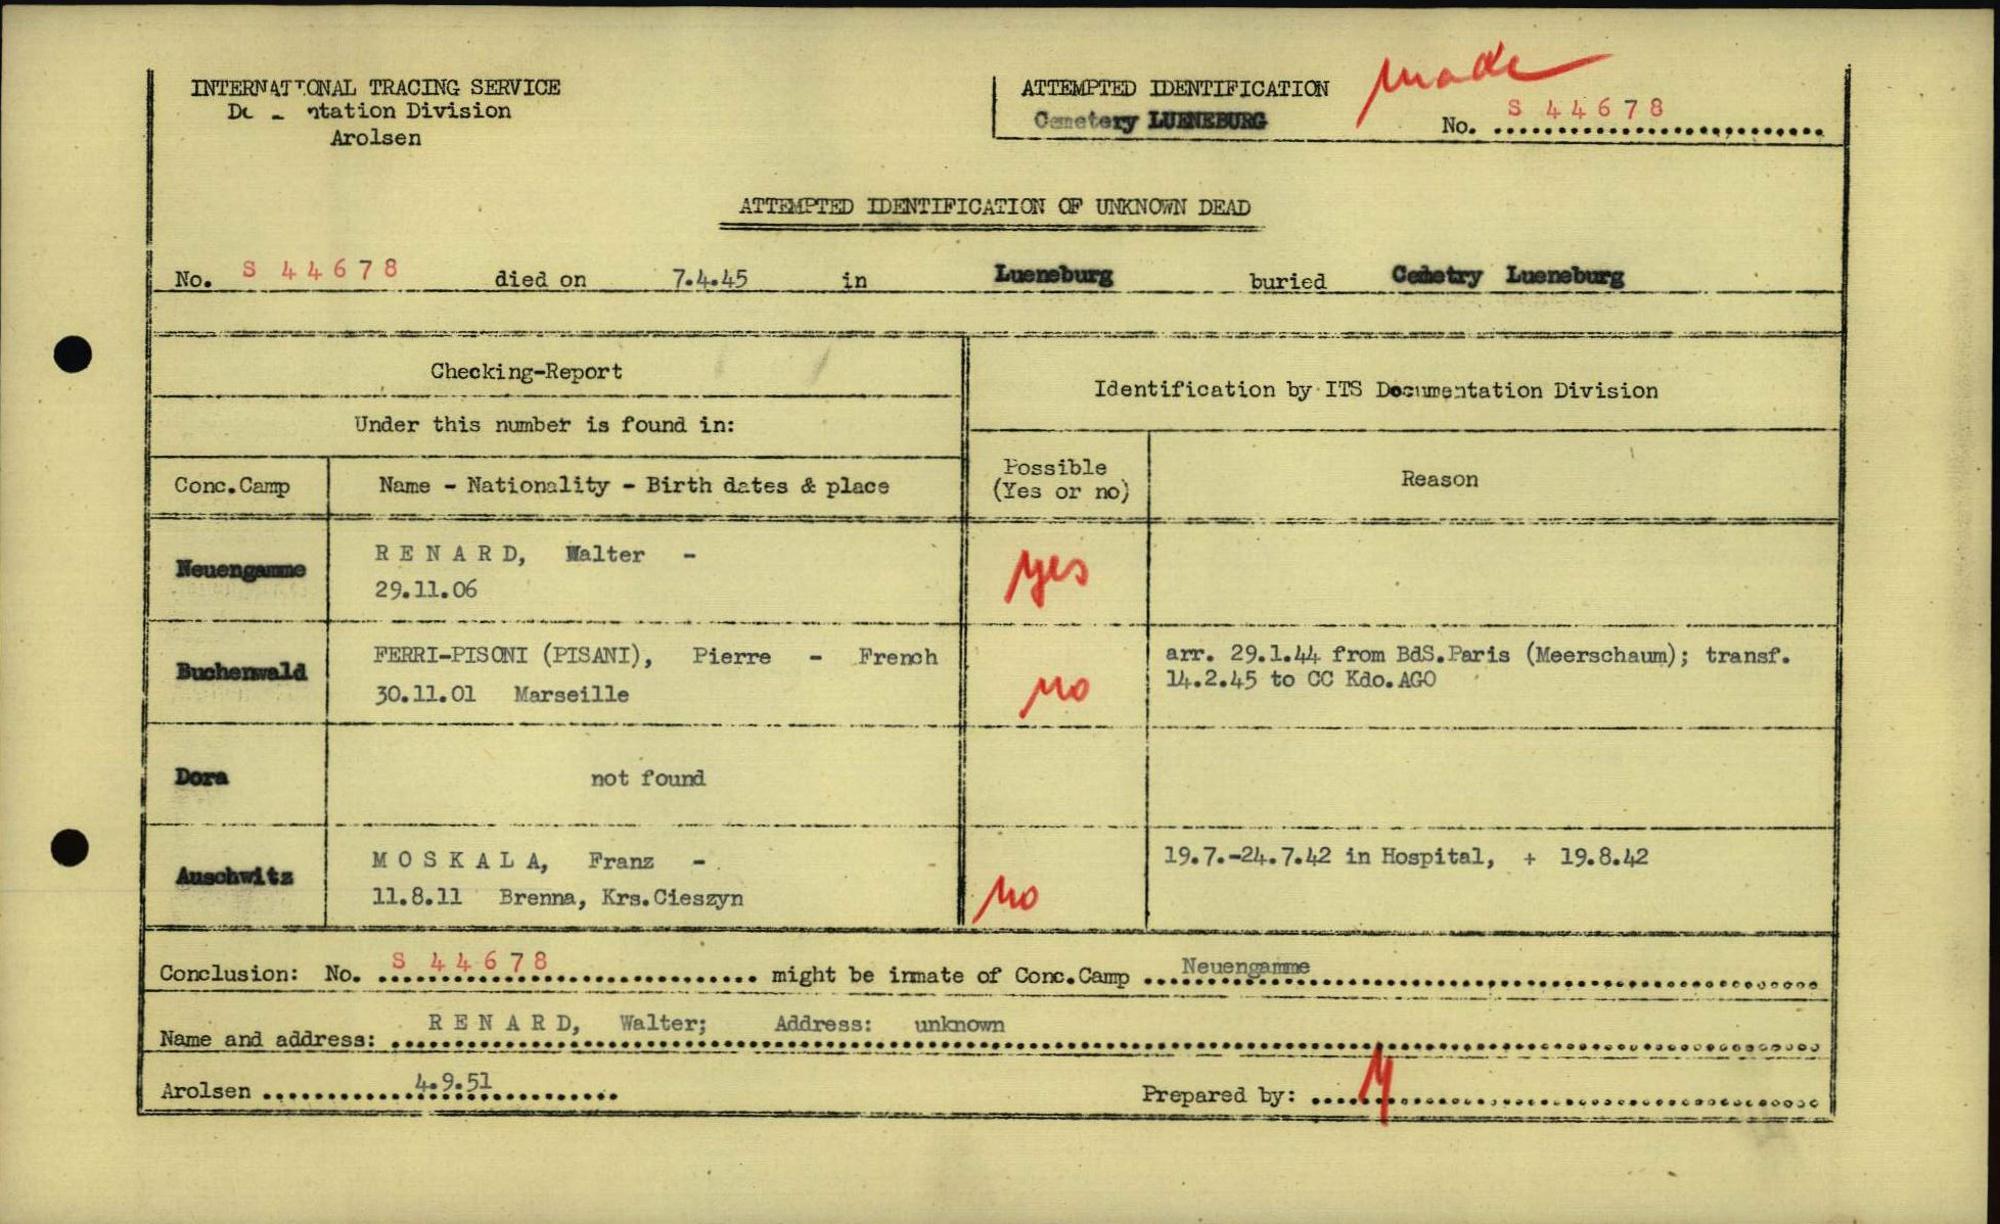 INTERNATIONAL TRACING SERVICE
Documentation Division
Arolsen
ATTEMPTED IDENTIFICATION
Cemetery LUENEBURG
made
No. S 44678
ATTEMPTED IDENTIFICATION OF UNKNOWN DEAD
No. S 44678 died on 7.4.45 in Lueneburg buried Cemetry Lueneburg
Checking-Report
Identification by ITS Documentation Division
Under this number is found in:
Conc.Camp
Name - Nationality - Birth dates & place
Possible
(Yes or no)
Reason
Neuengamme
RENARD, Walter -
29.11.06
yes
Buchenwald
FERRI-PISONI (PISANI), Pierre - French
30.11.01 Marseille
no
arr. 29.1.44 from BdS.Paris (Meerschaum); transf.
14.2.45 to CC Kdo.AGO
Dora
not found
Auschwitz
MOSKALA, Franz -
11.8.11 Brenna, Krs.Cieszyn
no
19.7.-24.7.42 in Hospital, + 19.8.42
Conclusion: No. S 44678 might be inmate of Conc.Camp Neuengamme
Name and address: RENARD, Walter; Address: unknown
Arolsen 4.9.51
Prepared by: